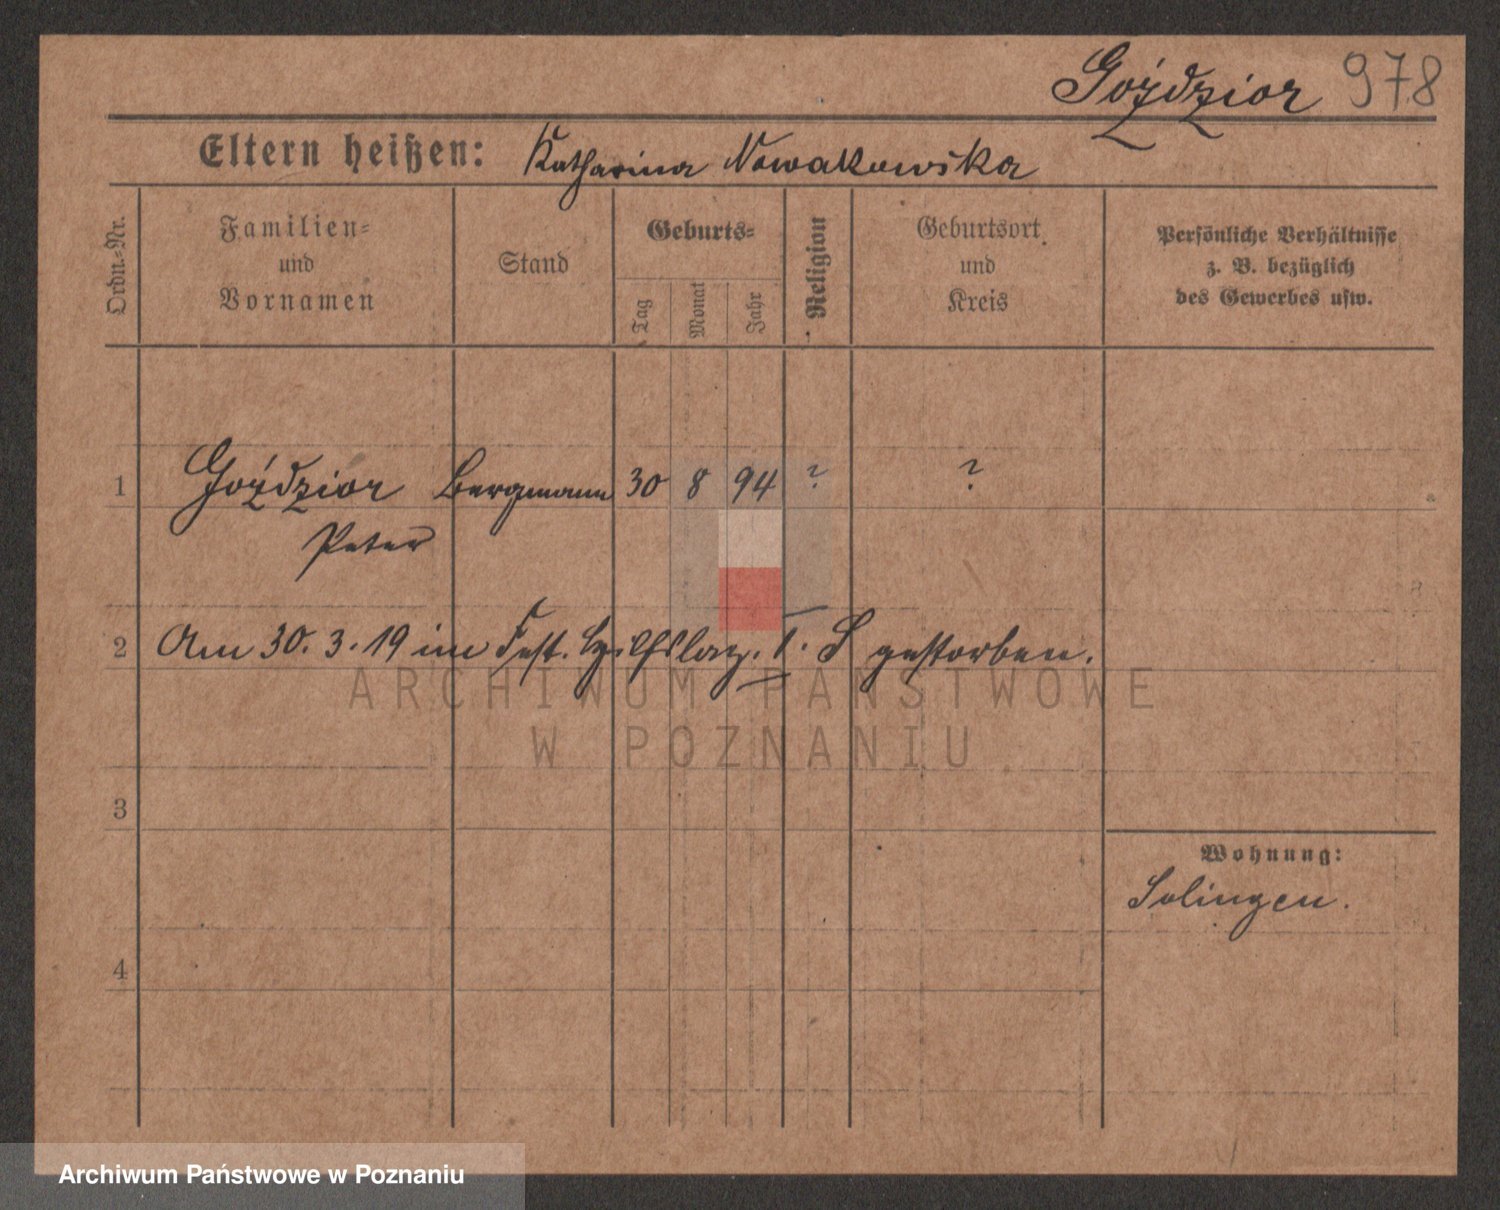 Goździor 978
Eltern heißen: Katharina Nowakowska
Ordn.-Nr.
Familien-
und
Vornamen
Stand
Geburts-
Tag
Monat
Jahr
Religion
Geburtsort
und
Kreis
Persönliche Verhältnisse
z. B. bezüglich
des Gewerbes usw.
1 Goździor Bergmann 30 8 94 ? ?
Peter
2 Am 30. 3. 19 im Fest. Hilfslaz. I. S gestorben.
ARCHIWUM PAŃSTWOWE
W POZNANIU
3
Wohnung:
Solingen.
4
Archiwum Państwowe w Poznaniu